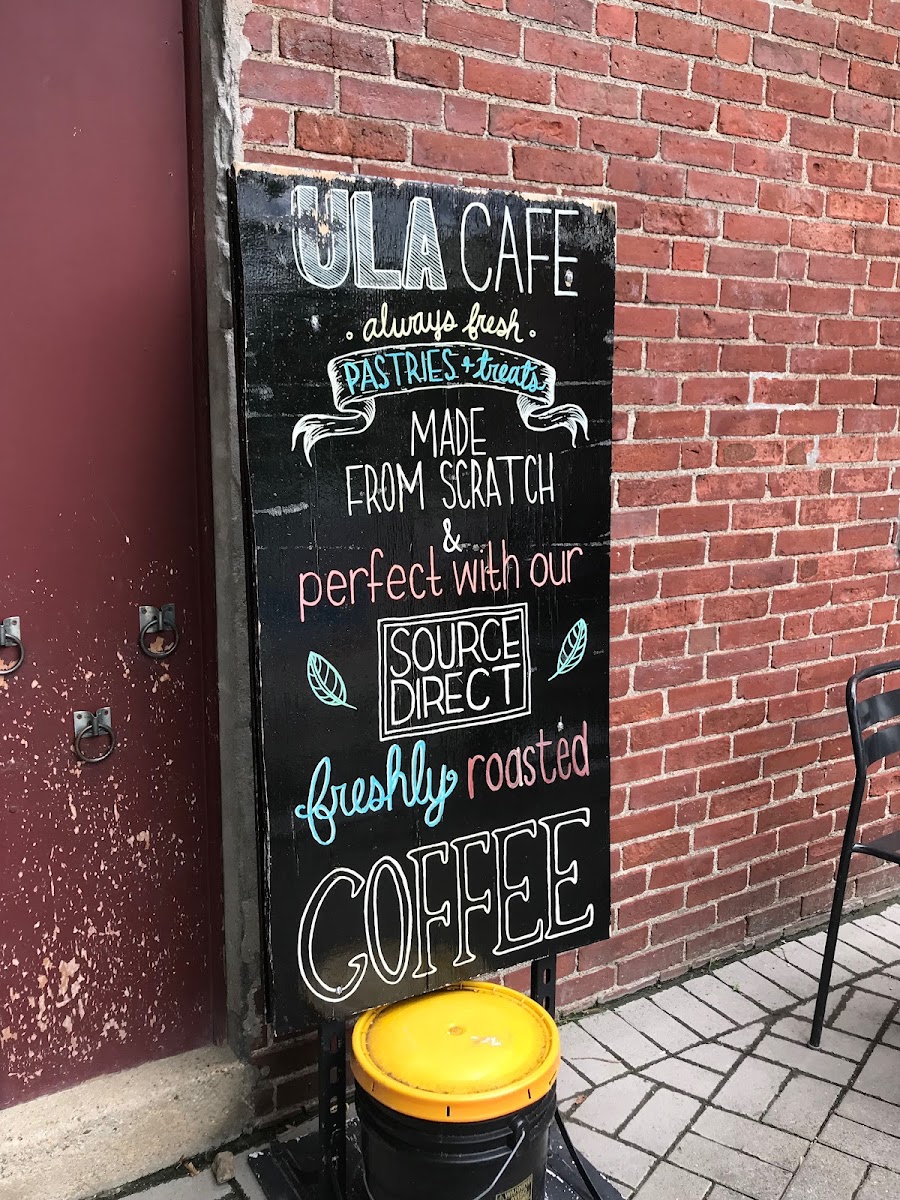 ULA CAFE
· always fresh ·
PASTRIES + treats
MADE
FROM SCRATCH
&
perfect with our
SOURCE
DIRECT
freshly roasted
COFFEE